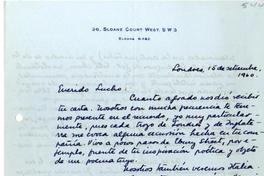 20, SLOANE COURT WEST, SW3
SLOANE
Londres, 15 de setiembre,
1960.
Querido Lucho:
Cuanto agrado nos dió recibir
tu carta. Nosotros con mucha frecuencia te tene-
mos presente en el recuerdo, yo muy particular-
mente, pues cada trozo de Londres y de Inglate-
rra me evoca alguna excursión hecha en tu com-
pañía. Vivo a pocos pasos de Ebury Street, por e-
jemplo, fuente de tu inspiración poética y objeto
de un poema tuyo.
Nosotros también veremos Italia